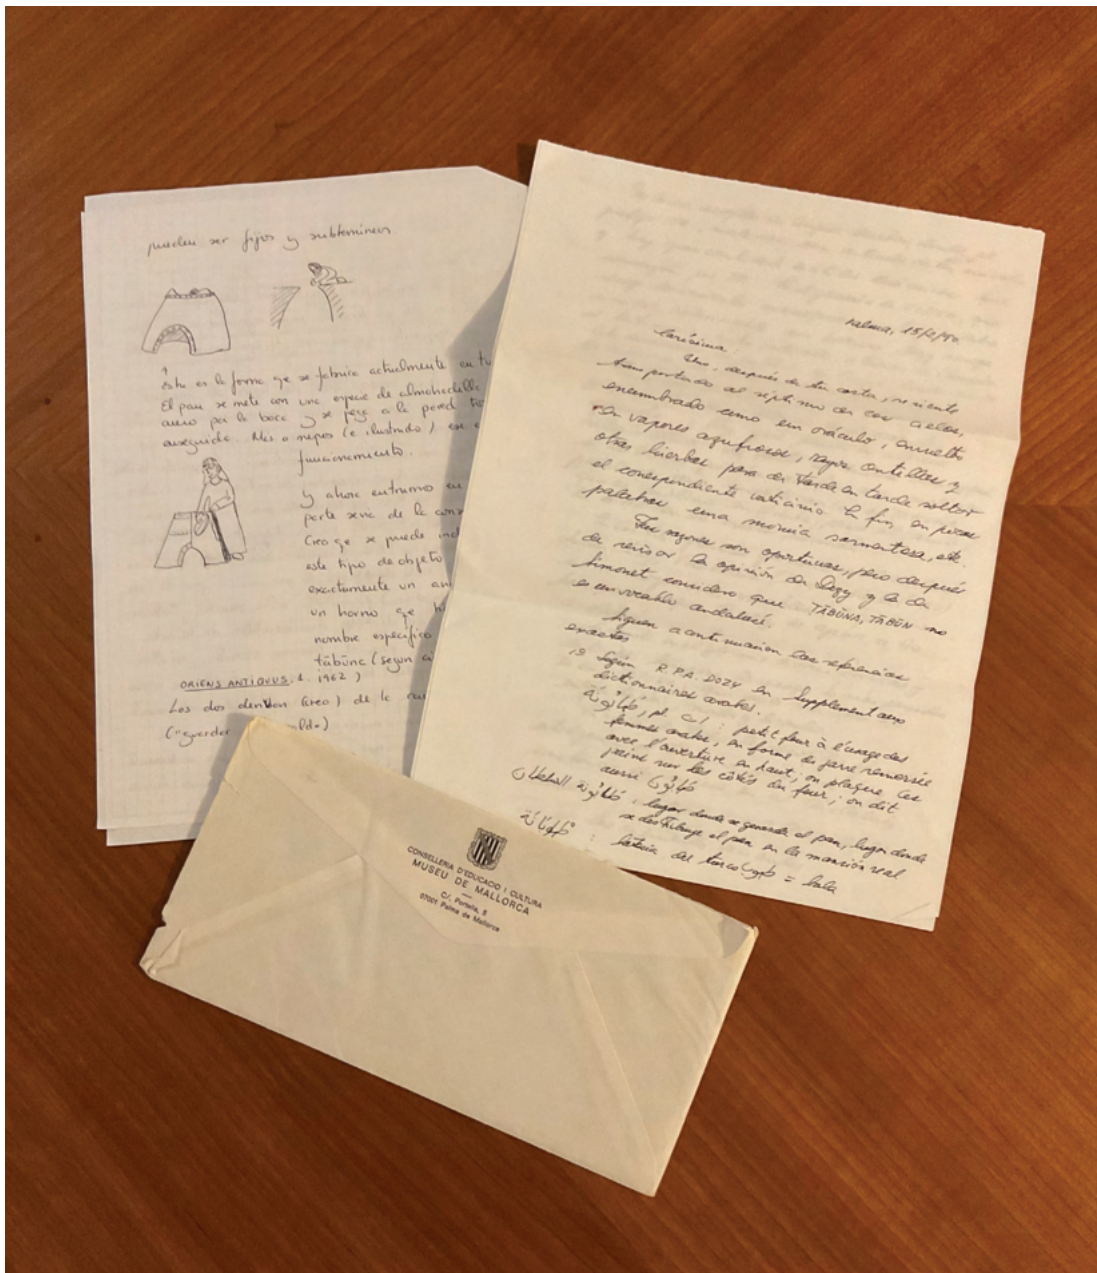 pueden ser fijos y subterraneos
Ésta es la forma qe se fabrica actualmente en tu
El pan se mete con una especie de almohadilla
cuero por la boca y se pega a la pared
enseguida. Mas o menos (e ilustrado) ese e
funcionamiento.
y ahora entramos en
parte seria de la
Creo qe se puede
este tipo de objeto
exactamente un
un horno qe
nombre especifico
tābūna (segun
ORIENS ANTIQUUS, 1. 1962)
Los dos derivan (creo) de la
("guardar
Palma, 15/2/90.
Carísima
Uno, después de tu carta, se siente
transportado al septimo de los cielos,
encumbrado como un oráculo, envuelto
en vapores sulfurosos, y
otras hierbas para de tarde en tarde soltar
el correspondiente vaticinio. En fin, en pocas
palabras una momia sarmentosa, etc.
Tus razones son oportunas, pero después
de revisar la opinión de Dozy y la de
Simonet considero que TĀBŪNA, TĀBŪN no
es un vocablo andalusí.
Siguen a continuacion las referencias
exactas
1º Según R.P.A. DOZY en Supplement aux
dictionnaires arabes.
طَابُونَة, pl. ات : petit four à l'usage des
femmes arabes, en forme de jarre renversée
avec l'ouverture en haut; on plaque les
pains sur les côtés du four; on dit
aussi طَابُون
طابونة السلطان : lugar donde se guarda el pan, lugar donde
se distribuye el pan en la mansión real
: del turco = bala
CONSELLERIA D'EDUCACIO I CULTURA
MUSEU DE MALLORCA
C/. Portella, 5
07001 Palma de Mallorca